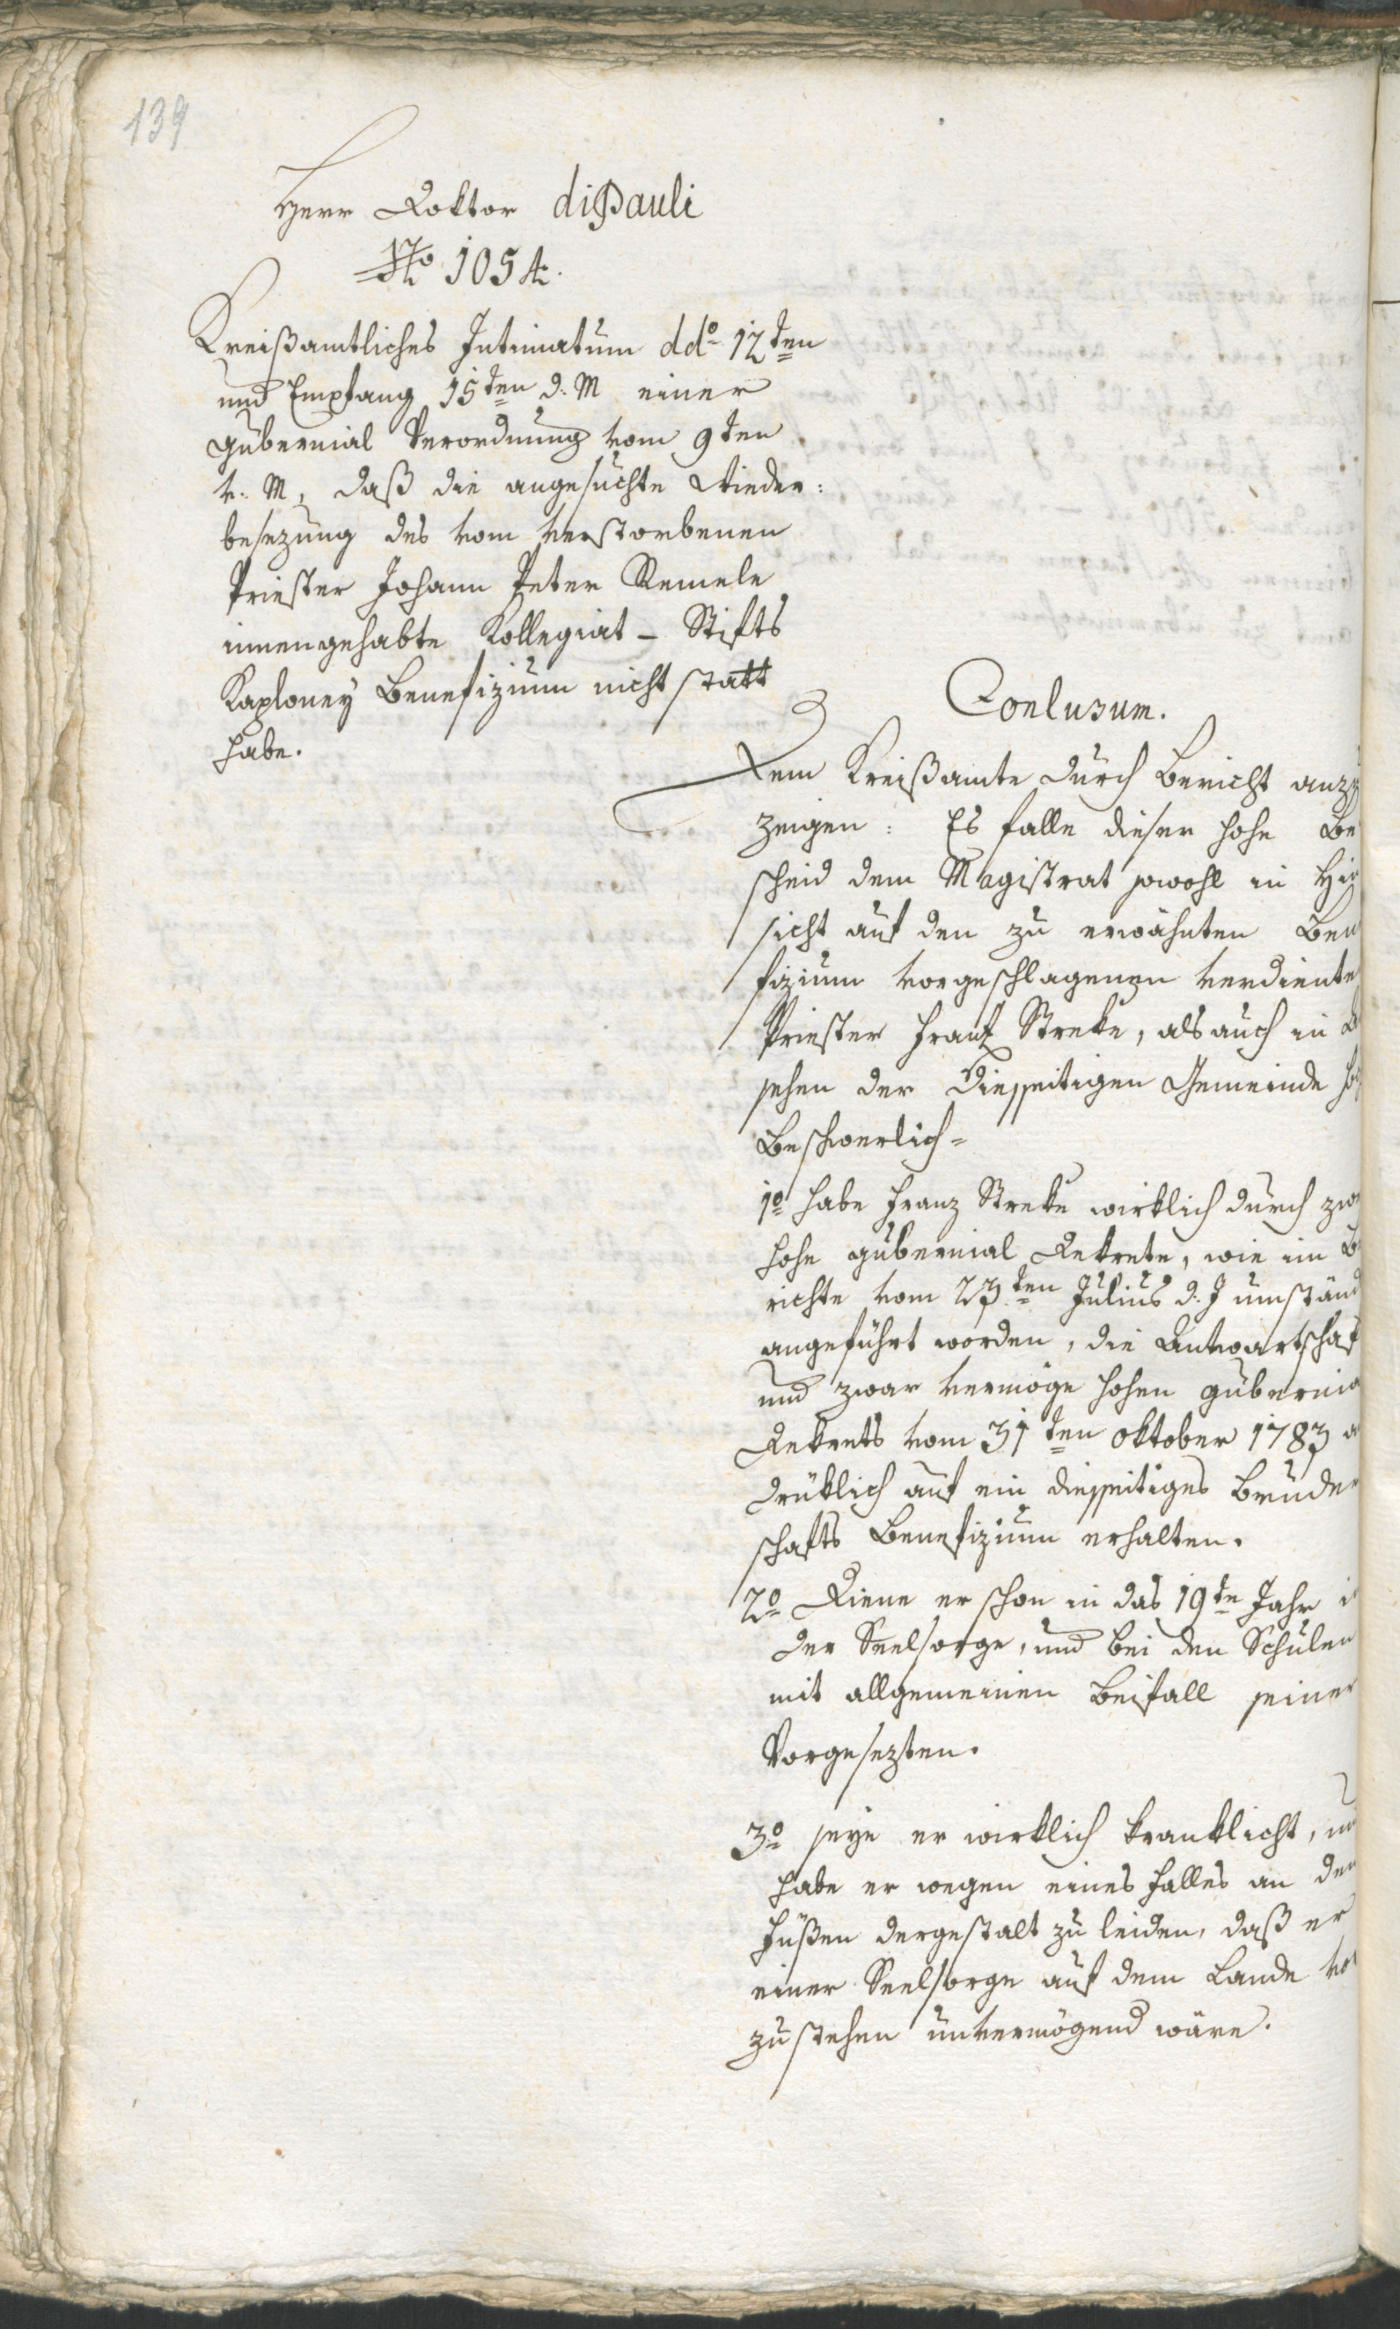 139
Herr Doktor diPauli
No 1054.
Kreißamtliches Intimatum ddo 12ten
und Empfang 15ten d. M einer
gubernial Verordnung vom 9ten
v. M, daß die angesuchte Wieder:
besezung des vom verstorbenen
Priester Johann Peter Remele
innengehabte Kollegiat – Stifts
Kaploney Benefizium nicht statt
habe.
Conlusum.
Dem Kreißamte durch Bericht anzu
zeigen: Es falle dieser hohe Be
scheid dem Magistrat sowohl in Hin
sicht auf den zu erwähnten Bene
fizium vorgeschlagenen verdiente
Priester Franz Streke, als auch in
sehen der diesseitigen Gemeinde
Beschwerlich=
1o habe Franz Streke wirklich durch zwe
hohe gubernial Dekrete, wie im Be
richte vom 23ten Julius d. J umständ
angeführt worden, die Anwartschaf
und zwar vermöge hohen gubernia
Dekrets vom 31ten oktober 1783
drüklich auf ein diesseitiges Bruder
schafts Benefizium erhalten.
2o Diene er schon in das 19te Jahr in
der Seelsorge, und bei den Schulen
mit allgemeinen Beifall seiner
Vorgesezten.
3o seye er wirklich kranklicht, un
habe er wegen eines Falles an den
Füßen dergestalt zu leiden, daß er
einer Seelsorge auf dem Lande vor
zustehen unvermögend wäre.